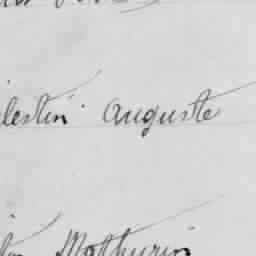 lestin Auguste
Mathurin